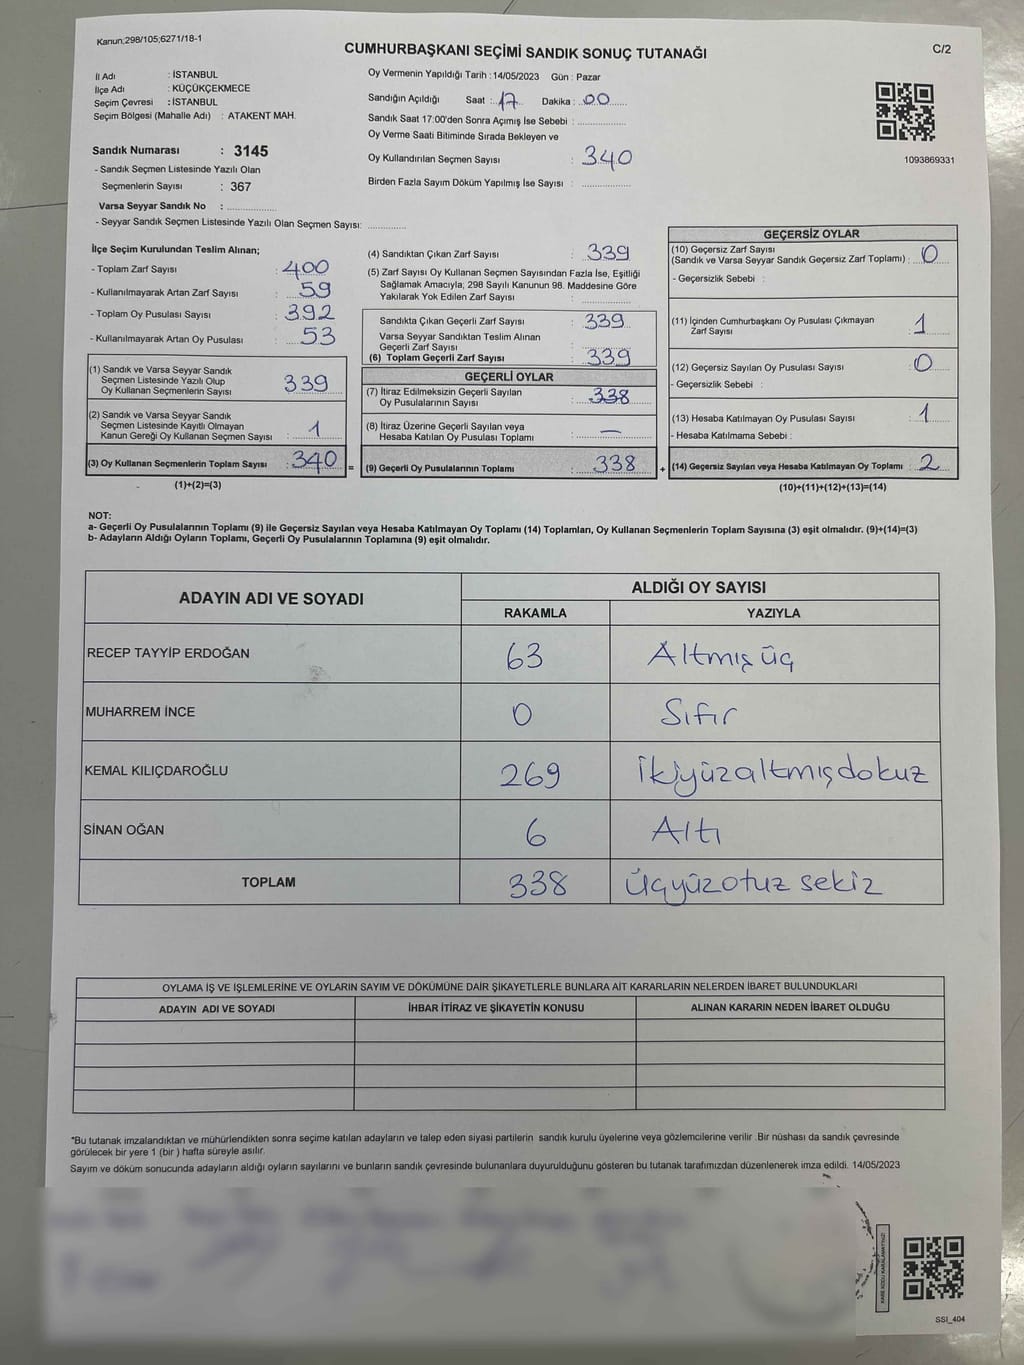 Kanun;298/105;6271/18-1
CUMHURBAŞKANI SEÇİMİ SANDIK SONUÇ TUTANAĞI
C/2
İl Adı : İSTANBUL
İlçe Adı : KÜÇÜKÇEKMECE
Seçim Çevresi : İSTANBUL
Seçim Bölgesi (Mahalle Adı) : ATAKENT MAH.
Sandık Numarası : 3145
- Sandık Seçmen Listesinde Yazılı Olan
Seçmenlerin Sayısı : 367
Varsa Seyyar Sandık No :
- Seyyar Sandık Seçmen Listesinde Yazılı Olan Seçmen Sayısı:
Oy Vermenin Yapıldığı Tarih : 14/05/2023 Gün : Pazar
Sandığın Açıldığı Saat : 17 Dakika : 00
Sandık Saat 17:00'den Sonra Açımış İse Sebebi :
Oy Verme Saati Bitiminde Sırada Bekleyen ve
Oy Kullandırılan Seçmen Sayısı : 340
Birden Fazla Sayım Döküm Yapılmış İse Sayısı :
1093869331
İlçe Seçim Kurulundan Teslim Alınan;
- Toplam Zarf Sayısı : 400
- Kullanılmayarak Artan Zarf Sayısı : 59
- Toplam Oy Pusulası Sayısı : 392
- Kullanılmayarak Artan Oy Pusulası : 53
(1) Sandık ve Varsa Seyyar Sandık
Seçmen Listesinde Yazılı Olup
Oy Kullanan Seçmenlerin Sayısı : 339
(2) Sandık ve Varsa Seyyar Sandık
Seçmen Listesinde Kayıtlı Olmayan
Kanun Gereği Oy Kullanan Seçmen Sayısı : 1
(3) Oy Kullanan Seçmenlerin Toplam Sayısı : 340
(1)+(2)=(3)
=
(4) Sandıktan Çıkan Zarf Sayısı : 339
(5) Zarf Sayısı Oy Kullanan Seçmen Sayısından Fazla İse, Eşitliği
Sağlamak Amacıyla, 298 Sayılı Kanunun 98. Maddesine Göre
Yakılarak Yok Edilen Zarf Sayısı :
Sandıkta Çıkan Geçerli Zarf Sayısı : 339
Varsa Seyyar Sandıktan Teslim Alınan
Geçerli Zarf Sayısı :
(6) Toplam Geçerli Zarf Sayısı : 339
GEÇERLİ OYLAR
(7) İtiraz Edilmeksizin Geçerli Sayılan
Oy Pusulalarının Sayısı : 338
(8) İtiraz Üzerine Geçerli Sayılan veya
Hesaba Katılan Oy Pusulası Toplamı : —
(9) Geçerli Oy Pusulalarının Toplamı : 338
+
GEÇERSİZ OYLAR
(10) Geçersiz Zarf Sayısı
(Sandık ve Varsa Seyyar Sandık Geçersiz Zarf Toplamı) : 0
- Geçersizlik Sebebi :
(11) İçinden Cumhurbaşkanı Oy Pusulası Çıkmayan
Zarf Sayısı : 1
(12) Geçersiz Sayılan Oy Pusulası Sayısı : 0
- Geçersizlik Sebebi :
(13) Hesaba Katılmayan Oy Pusulası Sayısı : 1
- Hesaba Katılmama Sebebi :
(14) Geçersiz Sayılan veya Hesaba Katılmayan Oy Toplamı : 2
(10)+(11)+(12)+(13)=(14)
NOT:
a- Geçerli Oy Pusulalarının Toplamı (9) ile Geçersiz Sayılan veya Hesaba Katılmayan Oy Toplamı (14) Toplamları, Oy Kullanan Seçmenlerin Toplam Sayısına (3) eşit olmalıdır. (9)+(14)=(3)
b- Adayların Aldığı Oyların Toplamı, Geçerli Oy Pusulalarının Toplamına (9) eşit olmalıdır.
ADAYIN ADI VE SOYADI
ALDIĞI OY SAYISI
RAKAMLA YAZIYLA
RECEP TAYYİP ERDOĞAN 63 Altmış üç
MUHARREM İNCE 0 Sıfır
KEMAL KILIÇDAROĞLU 269 İkiyüzaltmışdokuz
SİNAN OĞAN 6 Altı
TOPLAM 338 Üçyüzotuz sekiz
OYLAMA İŞ VE İŞLEMLERİNE VE OYLARIN SAYIM VE DÖKÜMÜNE DAİR ŞİKAYETLERLE BUNLARA AİT KARARLARIN NELERDEN İBARET BULUNDUKLARI
ADAYIN ADI VE SOYADI İHBAR İTİRAZ VE ŞİKAYETİN KONUSU ALINAN KARARIN NEDEN İBARET OLDUĞU
*Bu tutanak imzalandıktan ve mühürlendikten sonra seçime katılan adayların ve talep eden siyasi partilerin sandık kurulu üyelerine veya gözlemcilerine verilir .Bir nüshası da sandık çevresinde
görülecek bir yere 1 (bir ) hafta süreyle asılır.
Sayım ve döküm sonucunda adayların aldığı oyların sayılarını ve bunların sandık çevresinde bulunanlara duyurulduğunu gösteren bu tutanak tarafımızdan düzenlenerek imza edildi. 14/05/2023
KARE KODU KARALAMAYINIZ!
SSI_404